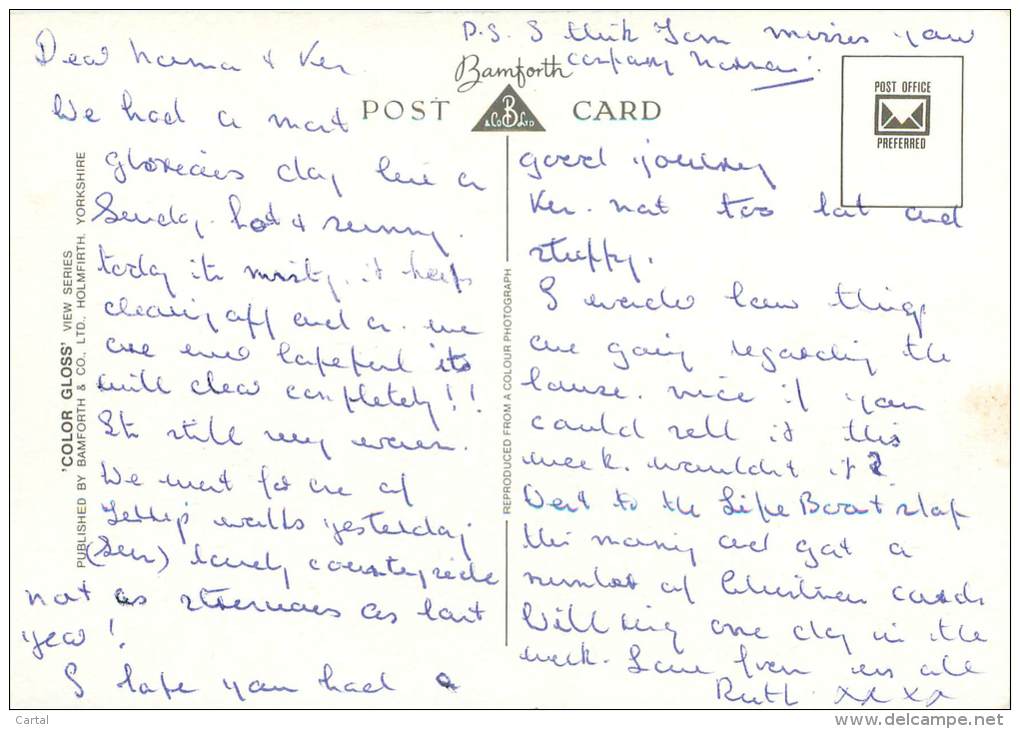 P.S. I think Tom misses your
company Nanna!
Dear Nanna & Ken
We had a most
glorious day here on
Sunday. hot & sunny.
today its misty. it keeps
clearing off and on. we
are ever hopeful its
will clear completely!!
Its still very warm.
We went for one of
walks yesterday
(Sun) lovely countryside
not as strenuous as last
year!
I hope you had a
good journey
Ken. not too hot and
stuffy.
I wonder how things
are going regarding the
house. nice if you
could sell it this
week. wouldnt it?
Went to the Life Boat shop
this morning and got a
number of Christmas cards
Will ring one day in the
week. Love from us all
Ruth xxxx
Bamforth
POST CARD
& Co B Ltd
POST OFFICE
PREFERRED
'COLOR GLOSS' VIEW SERIES
PUBLISHED BY BAMFORTH & CO., LTD., HOLMFIRTH, YORKSHIRE
REPRODUCED FROM A COLOUR PHOTOGRAPH
Cartal
www.delcampe.net